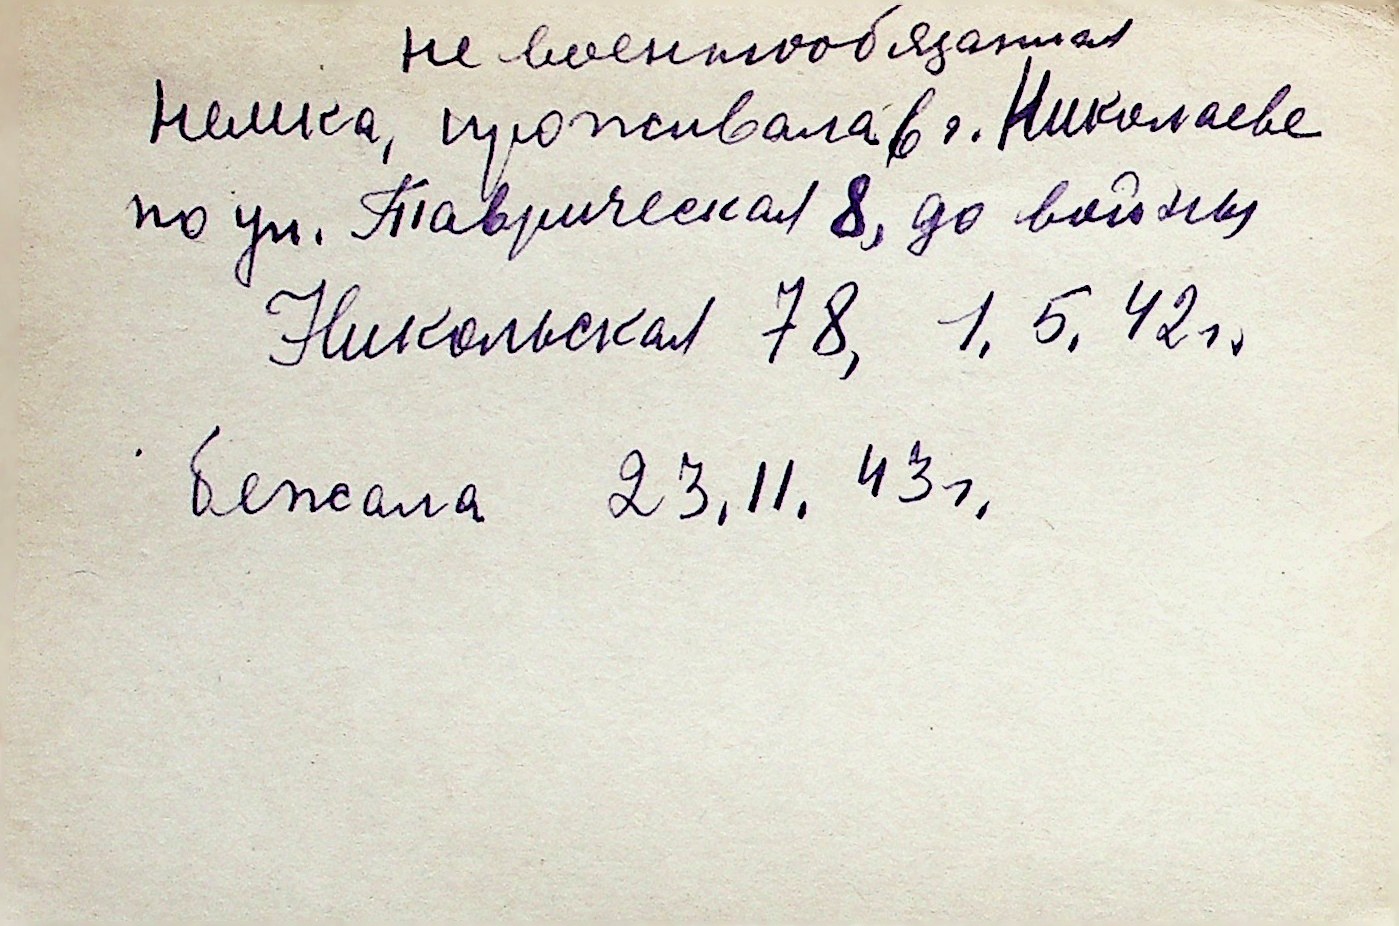 не военнообязанная
Немка, проживала в г. Николаеве
по ул. Таврическая 8, до войны
Никольская 78, 1. 5. 42 г.
бежала 23. 11. 43 г.